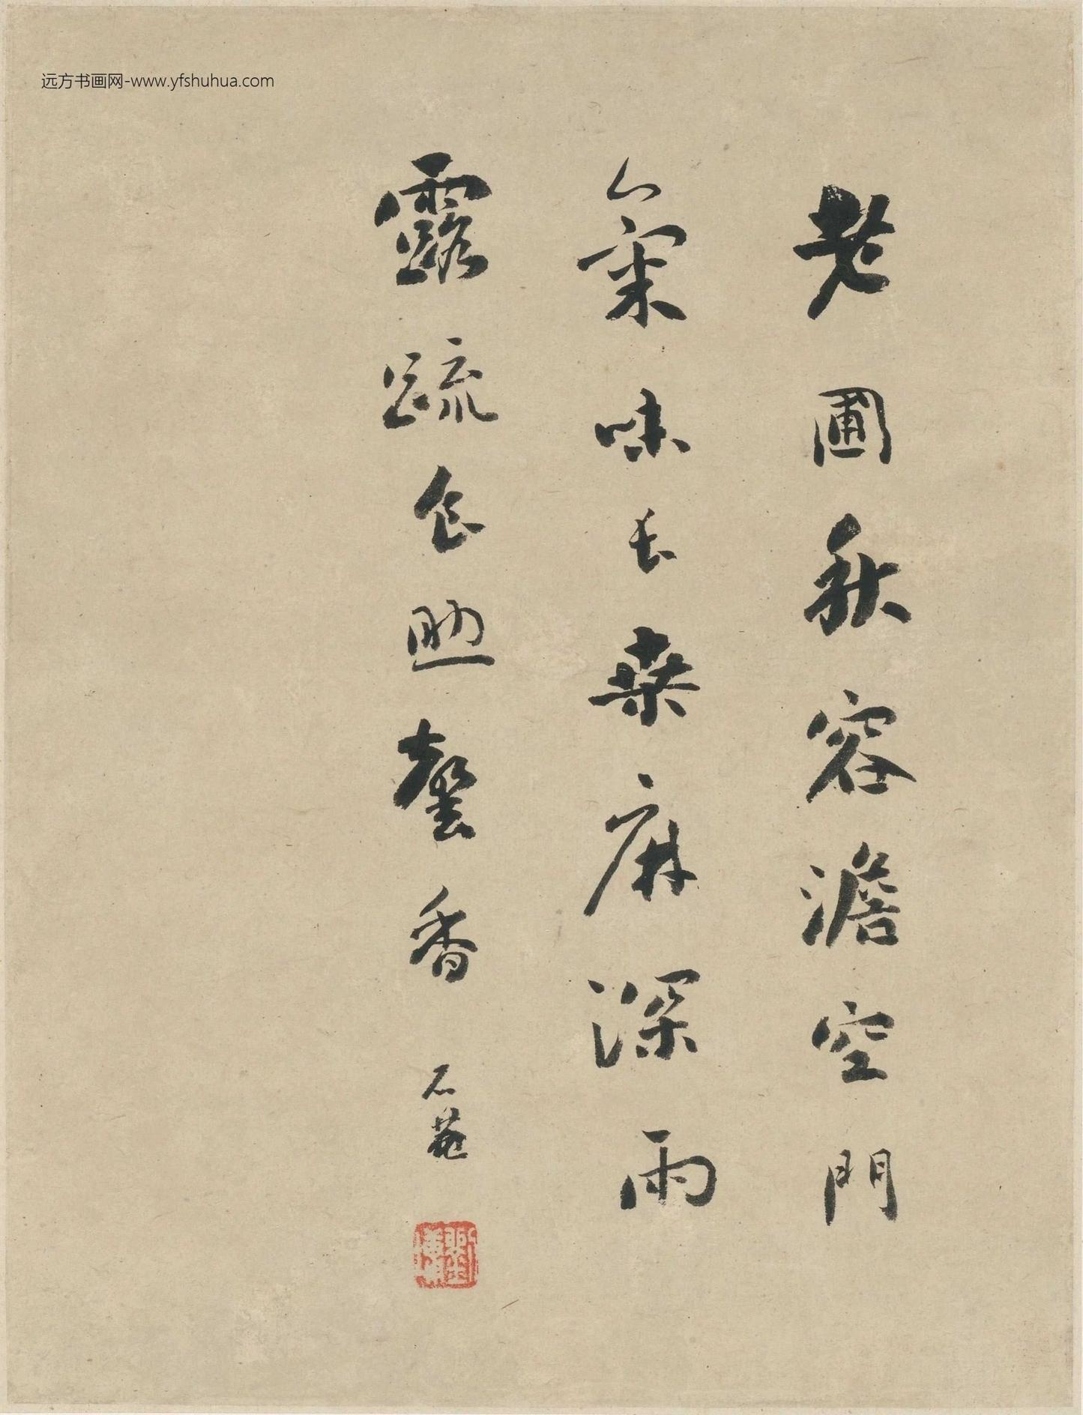 远方书画网-www.yfshuhua.com
老圃秋容澹空門
氣味長桒麻深雨
露疏食助馨香
石菴